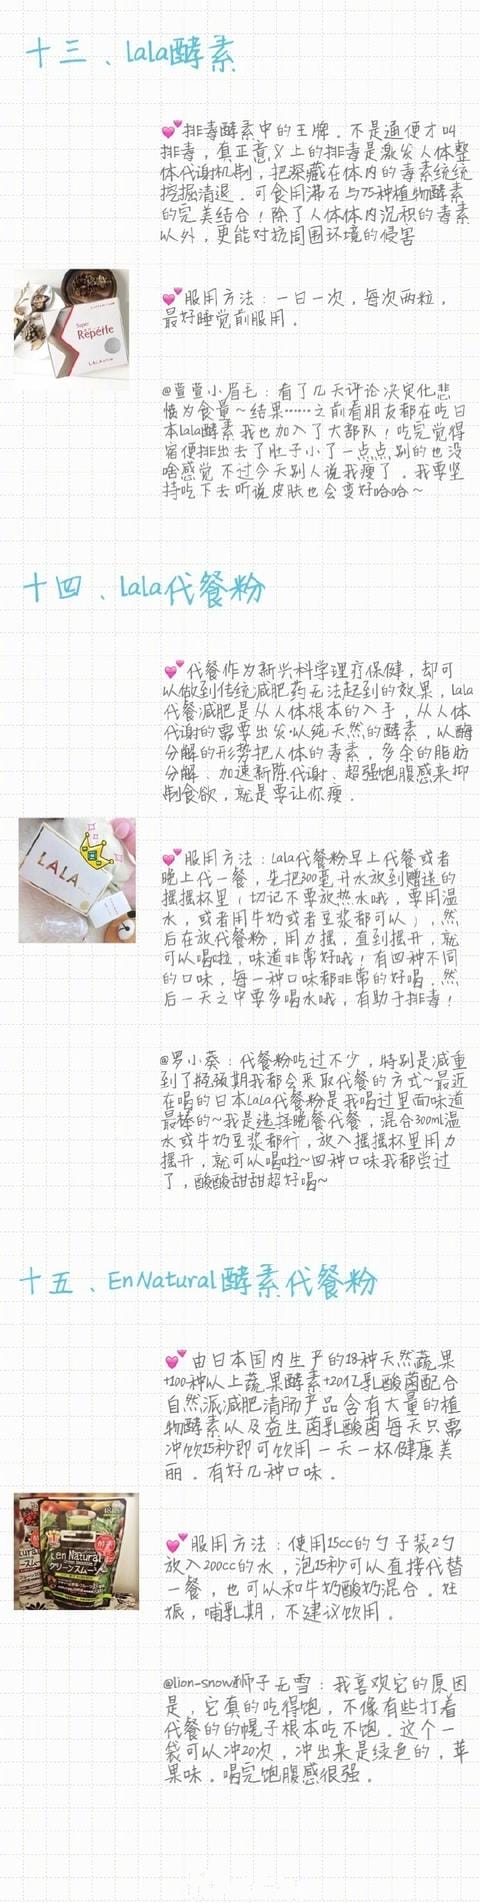 十三、lala酵素
排毒酵素中的王牌。不是通便才叫
排毒，真正意义上的排毒是激发人体整
体代谢机制，把深藏在体内的毒素统统
挖掘清退。可食用沸石与75种植物酵素
的完美结合！除了人体体内沉积的毒素
以外，更能对抗周围环境的侵害
服用方法：一日一次，每次两粒，
最好睡觉前服用。
@萱萱小眉毛：看了几天评论决定化悲
愤为食量~结果……之前看朋友都在吃日
本lala酵素我也加入了大部队！吃完觉得
宿便排出去了肚子小了一点点别的也没
啥感觉 不过今天别人说我瘦了。我要坚
持吃下去听说皮肤也会变好哈哈~
Super
Repette
LALA
十四、lala代餐粉
代餐作为新兴科学理疗保健，却可
以做到传统减肥药无法起到的效果，lala
代餐减肥是从人体根本的入手，从人体
代谢的需要出发以纯天然的酵素，以酶
分解的形势把人体的毒素，多余的脂肪
分解、加速新陈代谢、超强饱腹感来抑
制食欲，就是要让你瘦。
LALA
服用方法：lala代餐粉早上代餐或者
晚上代一餐，先把300毫升水放到赠送的
摇摇杯里（切记不要放热水哦，要用温
水，或者用牛奶或者豆浆都可以），然
后在放代餐粉，用力摇，直到摇开，就
可以喝啦，味道非常好哦！有四种不同
的口味，每一种口味都非常的好喝。然
后一天之中要多喝水哦，有助于排毒！
@罗小葵：代餐粉吃过不少，特别是减重
到了瓶颈期我都会采取代餐的方式~最近
在喝的日本Lala代餐粉是我喝过里面味道
最棒的~我是选择晚餐代餐，混合300ml温
水或牛奶豆浆都行，放入摇摇杯里用力
摇开，就可以喝啦~四种口味我都尝过
了，酸酸甜甜超好喝~
十五、EnNatural酵素代餐粉
由日本国内生产的18种天然蔬果
+100种以上蔬果酵素+20亿乳酸菌配合
自然派减肥清肠产品含有大量的植
物酵素以及益生菌乳酸菌每天只需
冲饮15秒即可饮用一天一杯健康美
丽。有好几种口味。
en Natural
グリーンスムージー
服用方法：使用15cc的勺子装2勺
放入200cc的水，泡15秒可以直接代替
一餐，也可以和牛奶酸奶混合。妊
娠，哺乳期，不建议饮用。
@lion-snow狮子无雪：我喜欢它的原因
是，它真的吃得饱，不像有些打着
代餐的的幌子根本吃不饱。这个一
袋可以冲20次，冲出来是绿色的，苹
果味。喝完饱腹感很强。